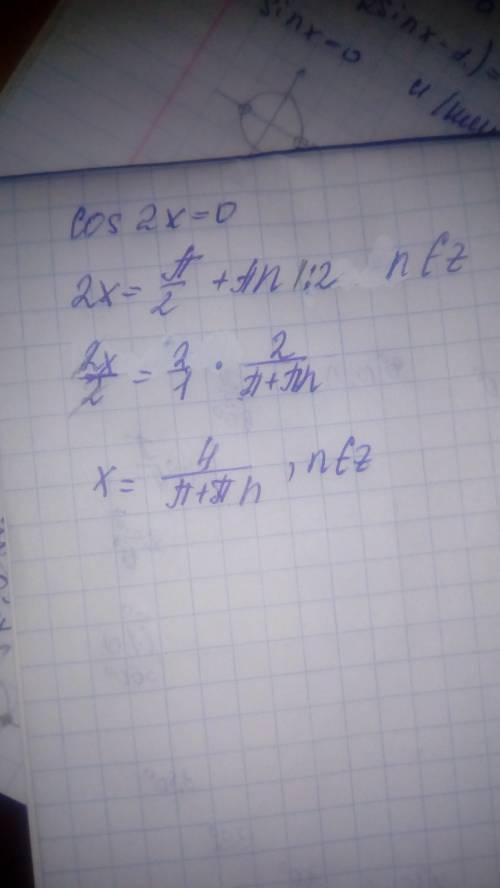 sinx=0
cos 2x=0
2x= π/2 +πn |:2 n∈z
2x/2 = 2/1 · 2/π+πn
x= 4/π+πn , n∈z